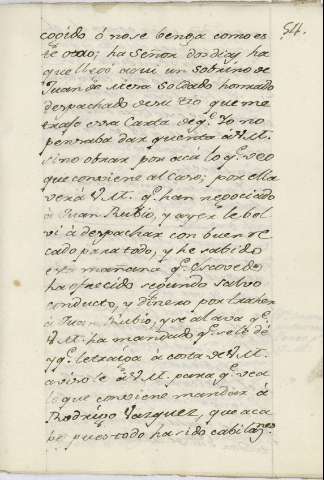 54.
cogido ó no se benga como es
te otro; ha Señor dos dias ha
que llegó aqui un sobrino de
Juan de Mesa soldado honrado
despachado de su tio que me
trajo essa Carta de q.e Yo no
pensaba dar quenta á V.M.
sino obrar por acá lo q.e veo
que conviene al caso; por ella
verá V.M. q.e han negociado
á Juan Rubio, y ayer le bol
vi á despachar con buen re
cado para todo, y he sabido
esta mañana q.e Escovedo
ha ofrecido segundo salvo
conducto, y dinero por traher
á Juan Rubio, y se alava q.e
V.M. ha mandado q.e se lo dé
y q.e le traiga á costa de V.M.
aviso le á V.M. para q.e vea
lo que conviene mandar á
Rodrigo Vazquez, que aca
be pues todo ha sido cabilaz.nes